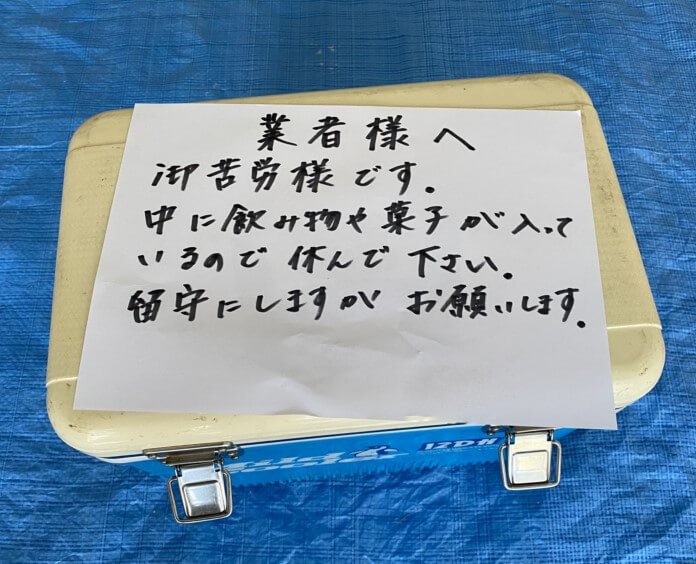 業者様へ
御苦労様です。
中に飲み物や菓子が入って
いるので休んで下さい。
留守にしますが お願いします。
12DH